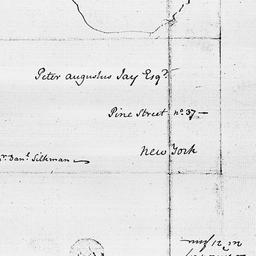 Peter Augustus Jay Esqr.
Pine Street No. 37—
New York
Silkman